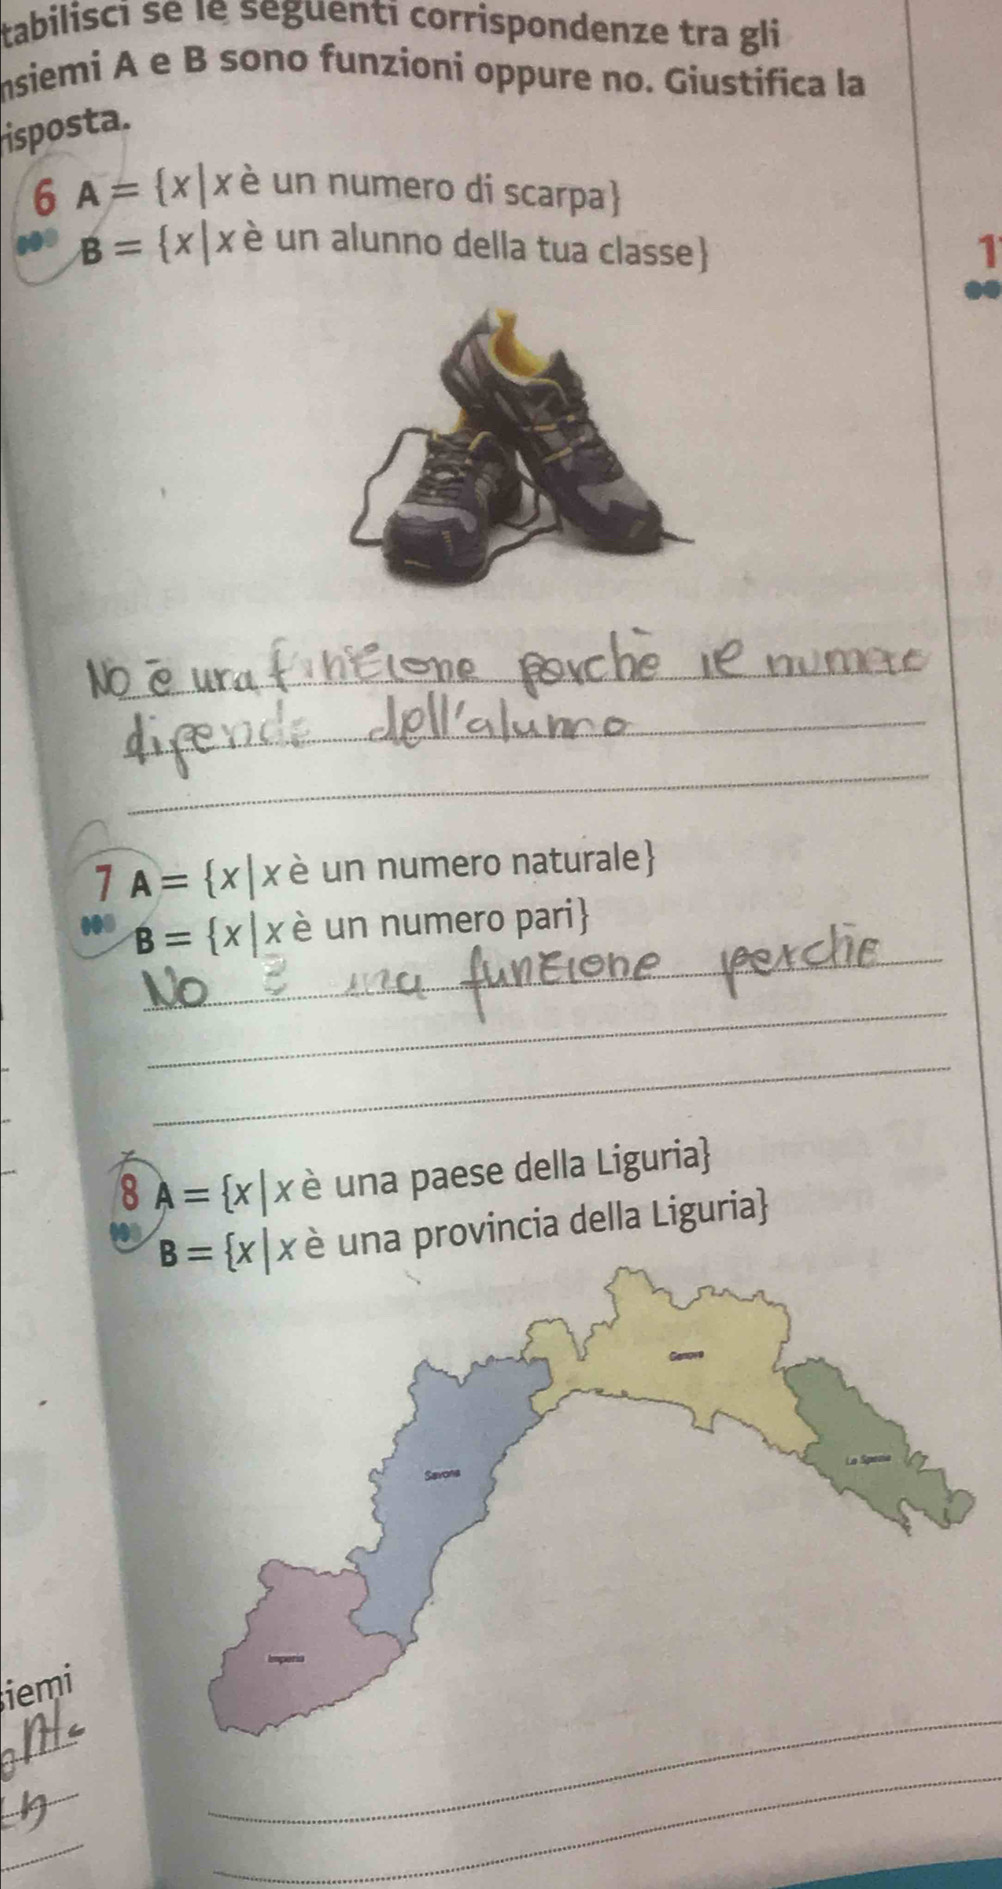 tabilisci se le seguenti corrispondenze tra gli
nsiemi A e B sono funzioni oppure no. Giustifica la
risposta.
6 A = {x|x è un numero di scarpa}
B = {x|x è un alunno della tua classe}
1
No è una funzione perchè il numero
dipende dell'alunno
7 A = {x|x è un numero naturale}
B = {x|x è un numero pari}
No è una funzione perchè
8 A = {x|x è una paese della Liguria}
B = {x|x è una provincia della Liguria}
Genova
La Spezia
Savona
Imperia
siemi